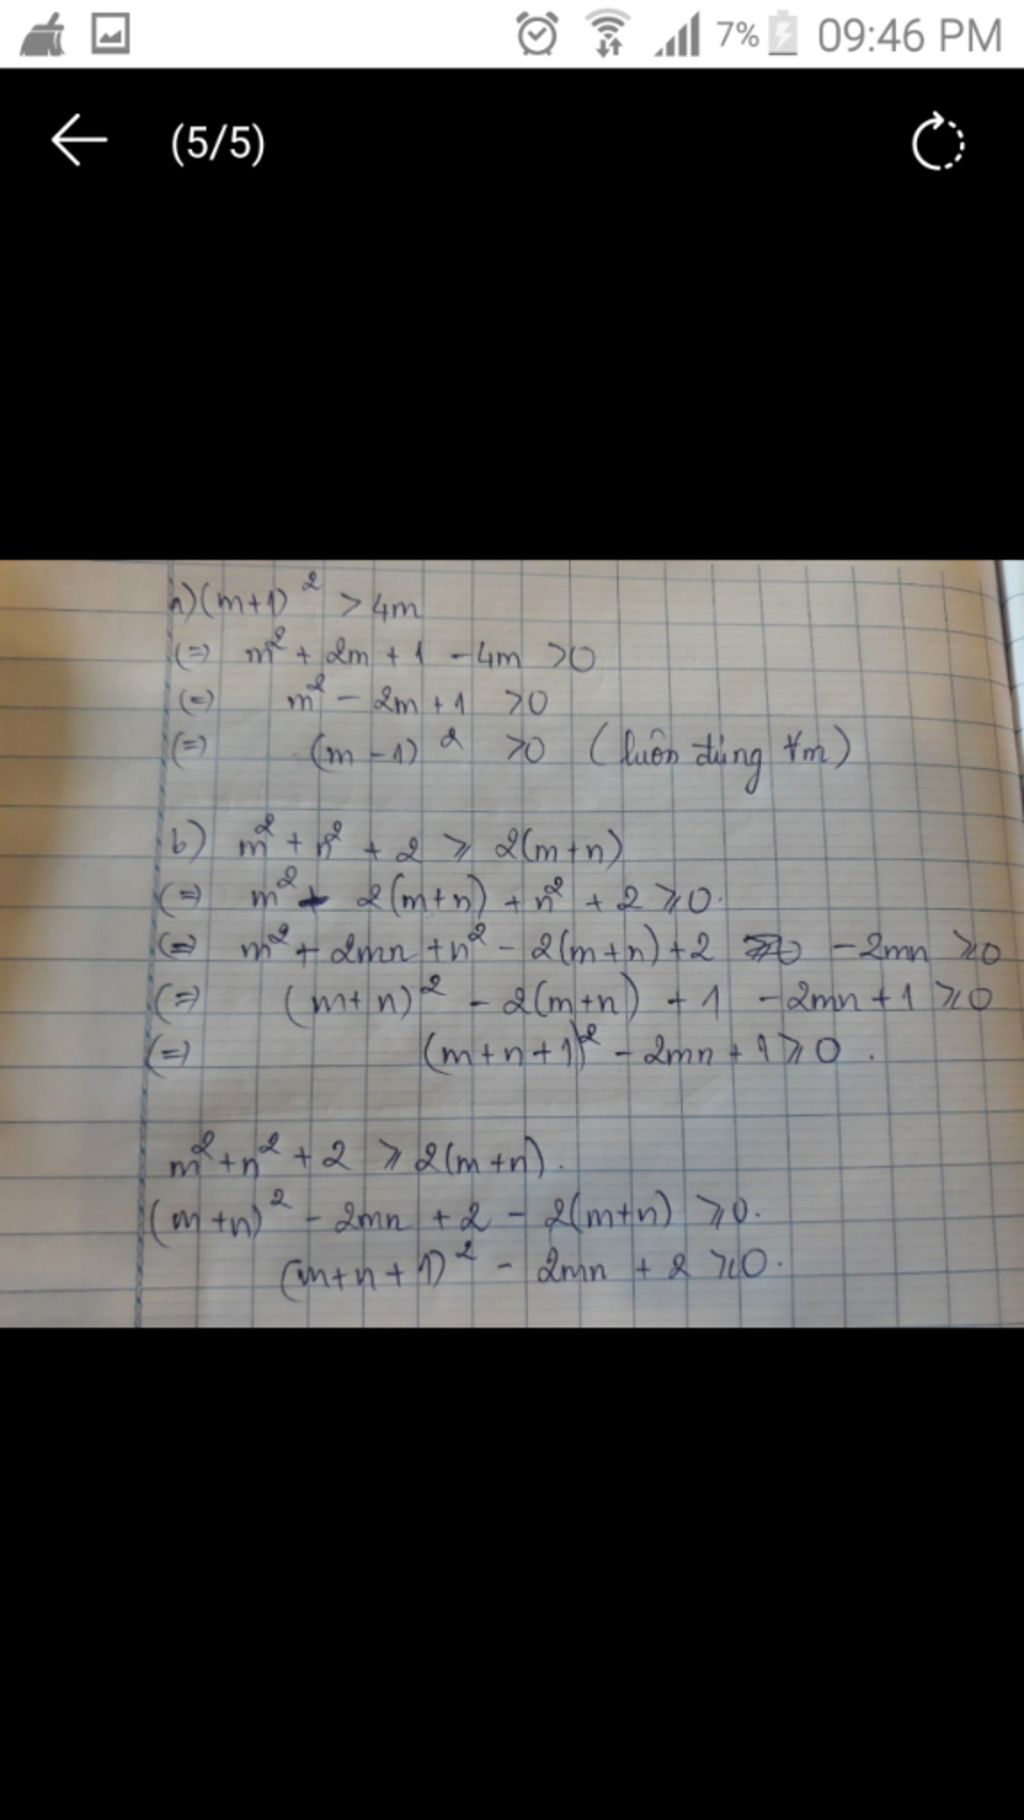 7% 09:46 PM
(5/5)
a) (m+1)² > 4m
(=) m² + 2m + 1 - 4m >0
(=) m² - 2m + 1 >0
(=) (m - 1)² >0 (luôn đúng ∀m)
b) m² + n² + 2 ⩾ 2(m+n)
(=) m² - 2(m+n) + n² + 2 ⩾0.
(=) m² + 2mn + n² - 2(m+n) + 2 - 2mn ⩾0
(=) (m+n)² - 2(m+n) + 1 - 2mn + 1 ⩾0
(=) (m+n+1)² - 2mn + 1 ⩾0.
m² + n² + 2 ⩾ 2(m+n).
(m+n)² - 2mn + 2 - 2(m+n) ⩾0.
(m+n+1)² - 2mn + 2 ⩾0.